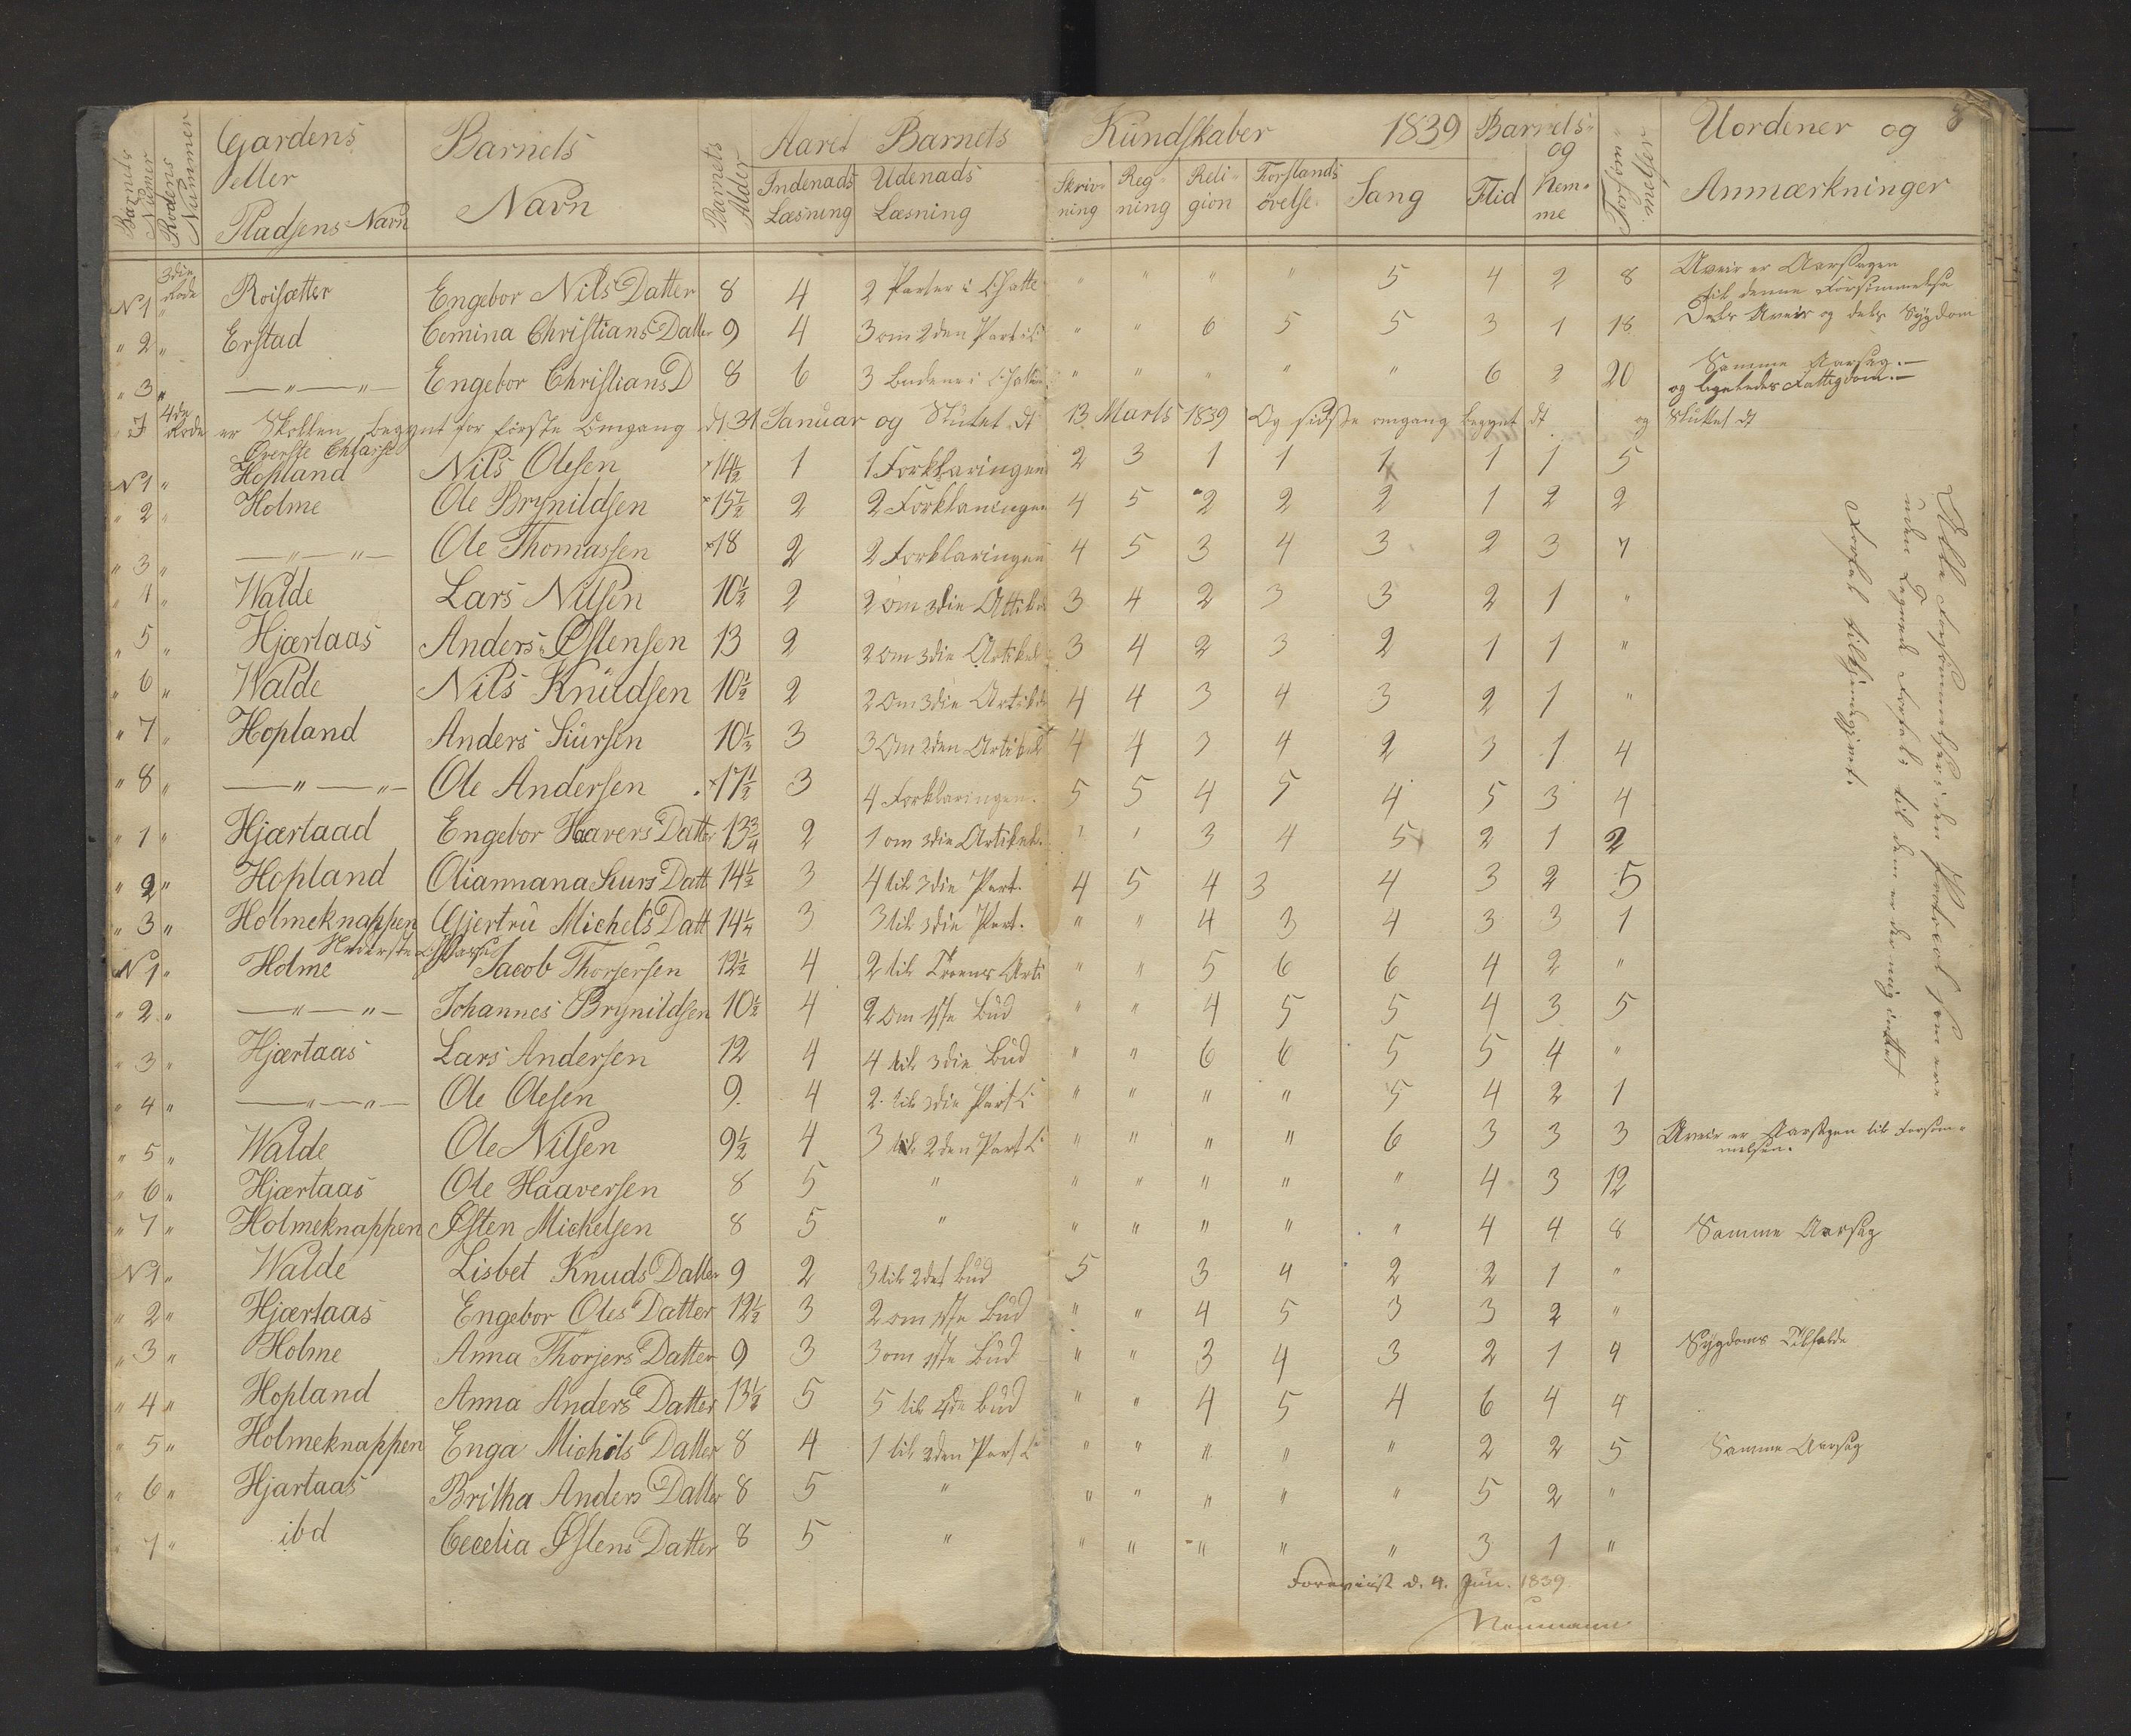 Barnets Numer
Rodens Nummer
Gardens eller Pladsens Navn
Barnets Navn
Barnets Alder
Aaret Barnets Kundskaber 1839
Indenads Læsning
Udenads Læsning
Skriv- ning
Reg- ning
Reli- gion
Forstands øvelse
Sang
Barnets- og
Flid
Nem- me
Uordener og Anmærkninger
8
3die Rode
N 1 " Roisætter Engebor Nils Datter 8 4 2 Parter i " " " " 5 4 2 8 Uveir er Aarsagen til denne Forsømmelse
" 2 " Erstad Cemina Christians Datter 9 4 3 om 2den Part i " " 6 5 5 3 1 18 Dels Uveir og dels Sygdom
" 3 " —"—"— Engebor Christians D 8 6 3 Budene i " " " " " 6 2 20 Samme Aarsag.— og ligeledes Fattigdom.—
I 4de Rode er Skollen begynt for første Omgang dt 31 Januar og Slutet dt 13 Marts 1839 Og sidste omgang begynt dt og Sluttet dt
Øverste
N 1 " Hopland Nils Olesen ×14½ 1 1 Forklaringen 2 3 1 1 1 1 1 5
" 2 " Holme Ole Brynildsen ×15½ 2 2 Forklaningen 4 5 2 2 2 1 2 2
" 3 " —"—"— Ole Thomassen ×18 2 2 Forklaringen 4 5 3 4 3 2 3 7
" 4 " Walde Lars Nilsen 10½ 2 2 om 3die 3 4 2 3 3 2 1 "
" 5 " Hjærtaas Anders Østensen 13 2 2 om 3die Artikel 3 4 2 3 2 1 1 "
" 6 " Walde Nils Knudsen 10½ 2 2 Om 3die Artikel 4 4 3 4 3 2 1 "
" 7 " Hopland Anders Siursen 10⅓ 3 3 Om 2den Artikel 4 4 3 4 2 3 1 4
" 8 " —"—"— Ole Andersen ×17½ 3 4 Forklaringen. 5 5 4 5 4 5 3 4
" 1 " Hjærtaad Engebor Haavers Datter 13¾ 2 1 om 3die Artikel. " " 3 4 5 2 1 2
" 2 " Hopland Oliannana Siurs Datt 14½ 3 4 til 3die Part. 4 5 4 3 4 3 2 5
" 3 " Holmeknappen Gjertru Michels Datt 14¼ 3 3 til 3die Part. " " 4 3 4 3 3 1
Nederste
N 1 " Holme Jacob Thorjersen 12½ 4 2 til Troens Arti " " 5 6 6 4 2 "
" 2 " —"—"— Johannes Brynildsen 10½ 4 2 Om 1ste Bud " " 4 5 5 4 3 5
" 3 " Hjærtaas Lars Andersen 12 4 4 til 3die Bud " " 6 6 5 5 4 "
" 4 " —"—"— Ole Olesen 9. 4 2 til 3die Part " " " " 5 4 2 1
" 5 " Walde Ole Nilsen 9½ 4 3 til 2den Part " " " " 6 3 3 3 Uveir er Aarsagen til Forsøm- melsen.
" 6 " Hjærtaas Ole Haaversen 8 5 " " " " " " 4 3 12
" 7 " Holmeknappen Østen Michelsen 8 5 " " " " " " 4 4 8 Samme Aarsag
N 1 " Walde Lisbet Knuds Datter 9 2 3 til 2det Bud 5 3 4 2 2 1 "
" 2 " Hjærtaas Engebor Oles Datter 12½ 3 2 om 1ste Bud " " 4 5 3 3 2 "
" 3 " Holme Anna Thorjers Datter 9 3 3 om 1ste Bud " " 3 4 3 2 1 4 Sygdoms Tilfælde
" 4 " Hopland Anna Anders Datter 13½ 5 5 til 4de Bud " " 4 5 4 6 4 4
" 5 " Holmeknappen Enga Michels Datter 8 4 1 til 2den Part " " " " " 2 2 5 Samme Aarsag
" 6 " Hjartaas Britha Anders Datter 8 5 " " " " " " 5 2 "
" 7 " ibd Cecelia Østens Datter 8 5 " " " " " " 3 1 "
Alle Forsømmelser i den Protocol som ere
uden Forfal til dem er der mig intet
Forfal tilkjendegivet.
Foreviist d. 4. Jun. 1839
Neumann